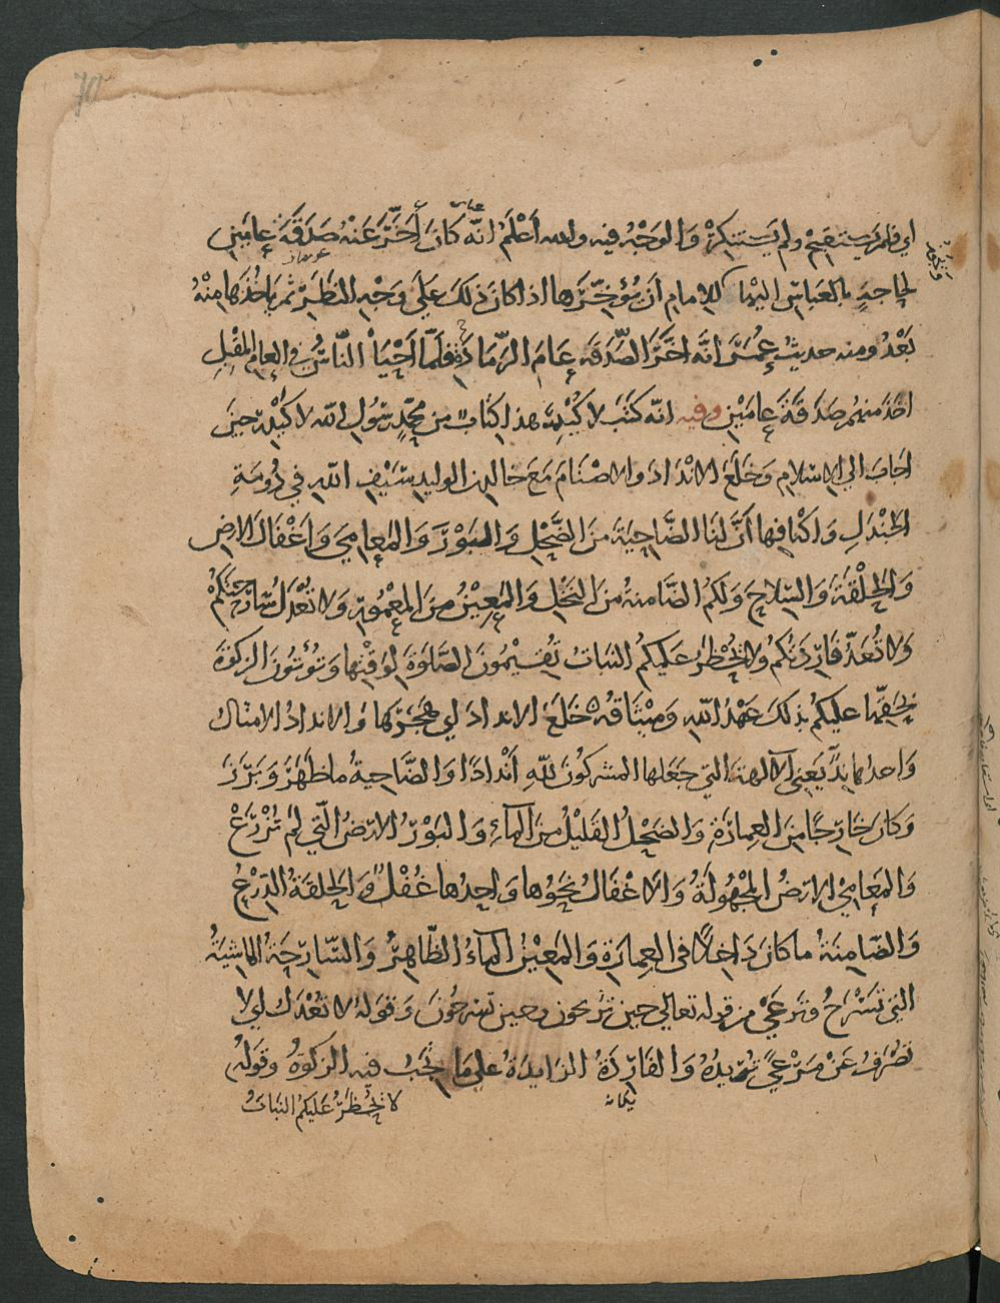 اي فلم يستقبح ولم يستنكر والوجه فيه والله أعلم انّه كان أخّر عنه صدقة عامين
لحاجة بالعباس اليها للامام ان يؤخّرها اذا كان ذلك على وجه النظر ثم ياخذها منه
بعد ومنه حديث عمر انّه اخّر الصّدقه عام الرّمادة فلمّا احيا النّاس في العام المقبل
اخذ منهم صدقة عامين وفيه انّه كتب لاكيدر هذا كتاب من محمّد رسول الله لاكيدر حين
اجاب الي الاسلام وخلع الانداد والاصنام مع خالد بن الوليد سيف الله في دومة
الجندل واكنافها أنّ لنا الضّاحية من الضّحل والبور والمعامي واغفال الارض
والحلقة والسّلاح ولكم الضّامنة من النخل والمعين من المعمور ولا تعدل سارحتكم
ولا تعدّ فاردتكم ولا يحظر عليكم النبات تقيمون الصّلوة لوقتها وتؤتون الزكوة
بحقّها عليكم بذلك عهد الله وميثاقه خلع الانداد اي هجرها والانداد الامثال
واحدها ندّ يعني الآلهة التي جعلها المشركون لله أندادا والضّاحية ما ظهر وبرز
وكان خارجا من العمارة والضحل القليل من الماء والبور الارض الّتي لم تزرع
والمعامي الارض المجهولة والاغفال نحوها واحدها غفل والحلقة الدّرع
والضّامنة ما كان داخلا في العمارة والمعين الماء الظّاهر والسّارحة الماشية
التي تسرح وترعي من قوله تعالي حين تريحون وحين تسرحون وقوله لا تعدل اي لا
تصرف عن مرعي تريده والفاردة الزايدة علي ما تجب فيه الزكوة وقوله
لا يحظر عليكم النبات